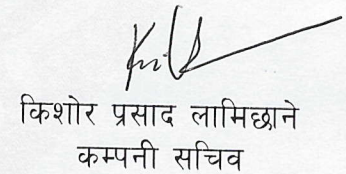 किशोर प्रसाद लामिछाने
कम्पनी सचिव